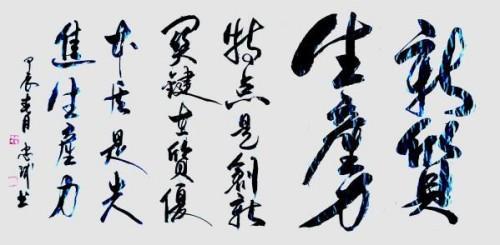 新質
生產力
特点是創新
關鍵在質優
本质是先
進生產力
甲辰春月
书